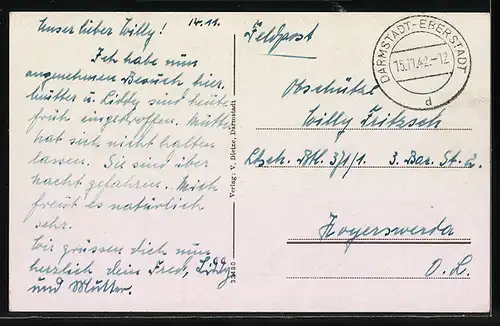 Unser lieber Willy! 14.11.
Ich habe nun
angenehmen Besuch hier.
Mutter u. Liddy sind heute
früh eingetroffen. Mutti
hat sich nicht halten
lassen. Sie sind über
Nacht gefahren. Mich
freut es natürlich
sehr.
Wir grüssen dich nun
herzlich dein Fred, Liddy
und Mutter.
Verlag: V. Dietze, Darmstadt
Feldpost
DARMSTADT-EBERSTADT
15.11.42.-12
d
Obschütze
Willy Fritzsch
3/1/1 3.
Hoyerswerda
O.L.